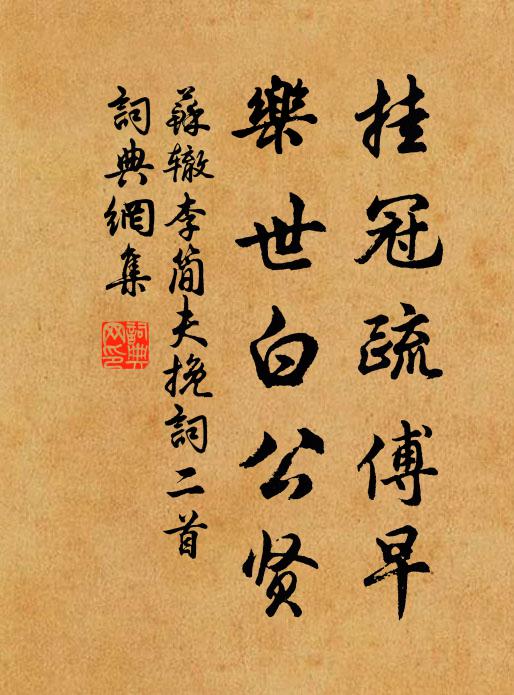 挂冠疏傅早
樂世白公贤
蘇辙李简夫挽詞二首
詞典網集
詞典网印